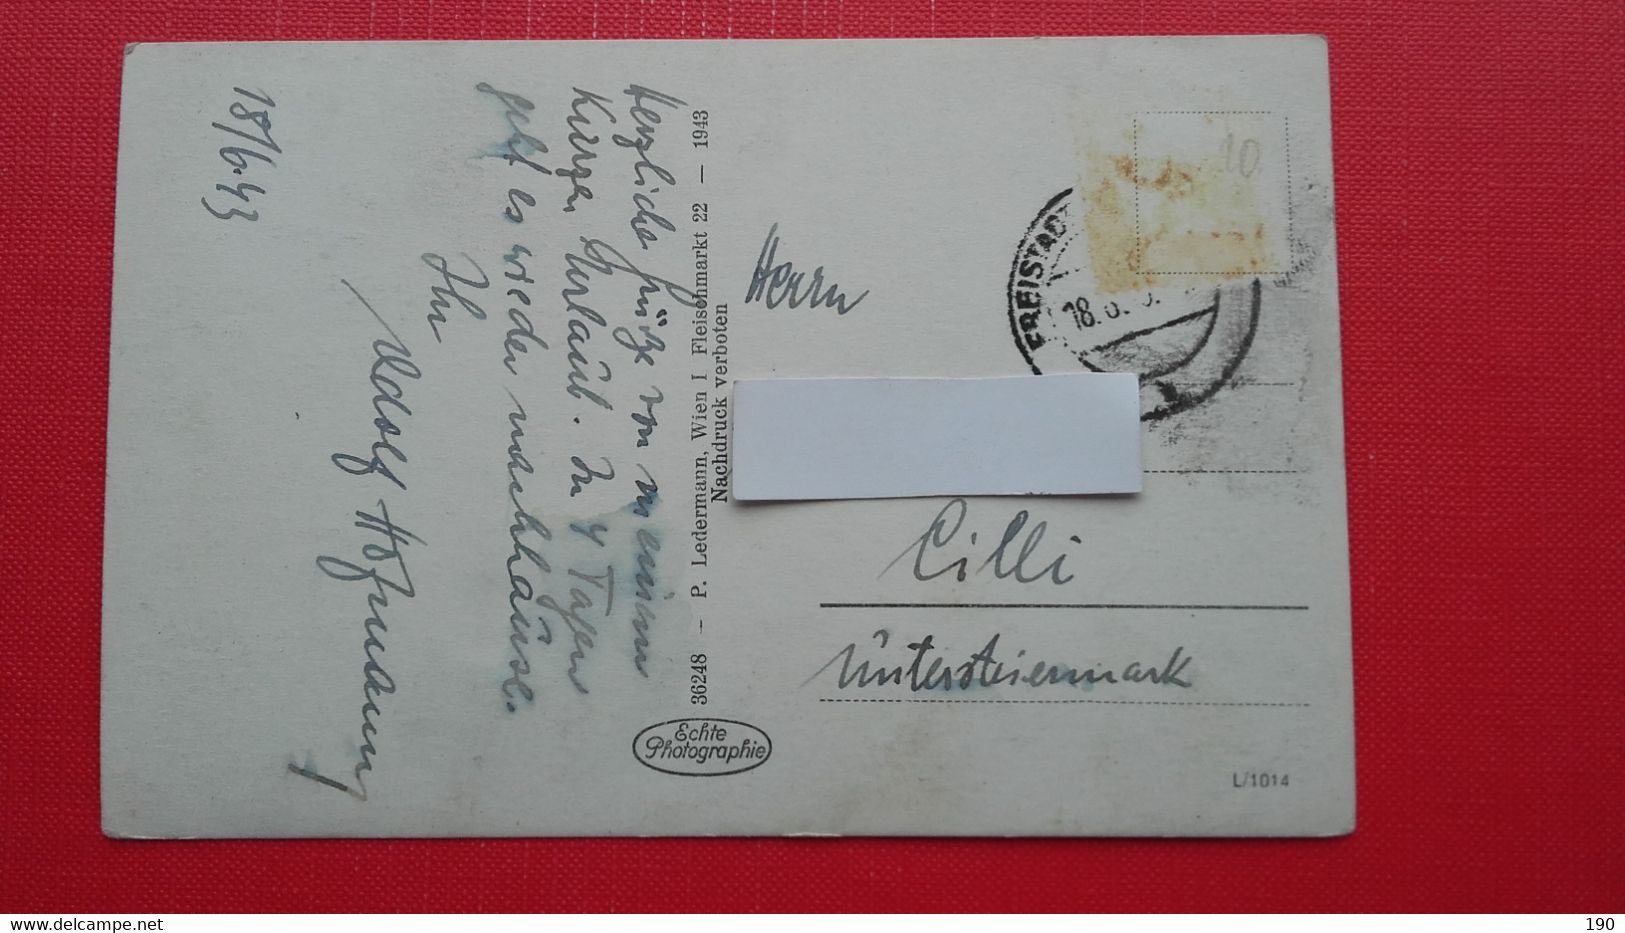 18/6.43
Herzliche Grüße von meinem
kurzen Urlaub. In 4 Tagen
geht es wieder nachhause.
Ihr
Adolf Hofmann
36248 – P. Ledermann, Wien I Fleischmarkt 22 — 1943
Nachdruck verboten
Echte
Photographie
10
FREISTADT
18. 6.
Herrn
Cilli
Untersteiermark
L/1014
delcampe.net
190